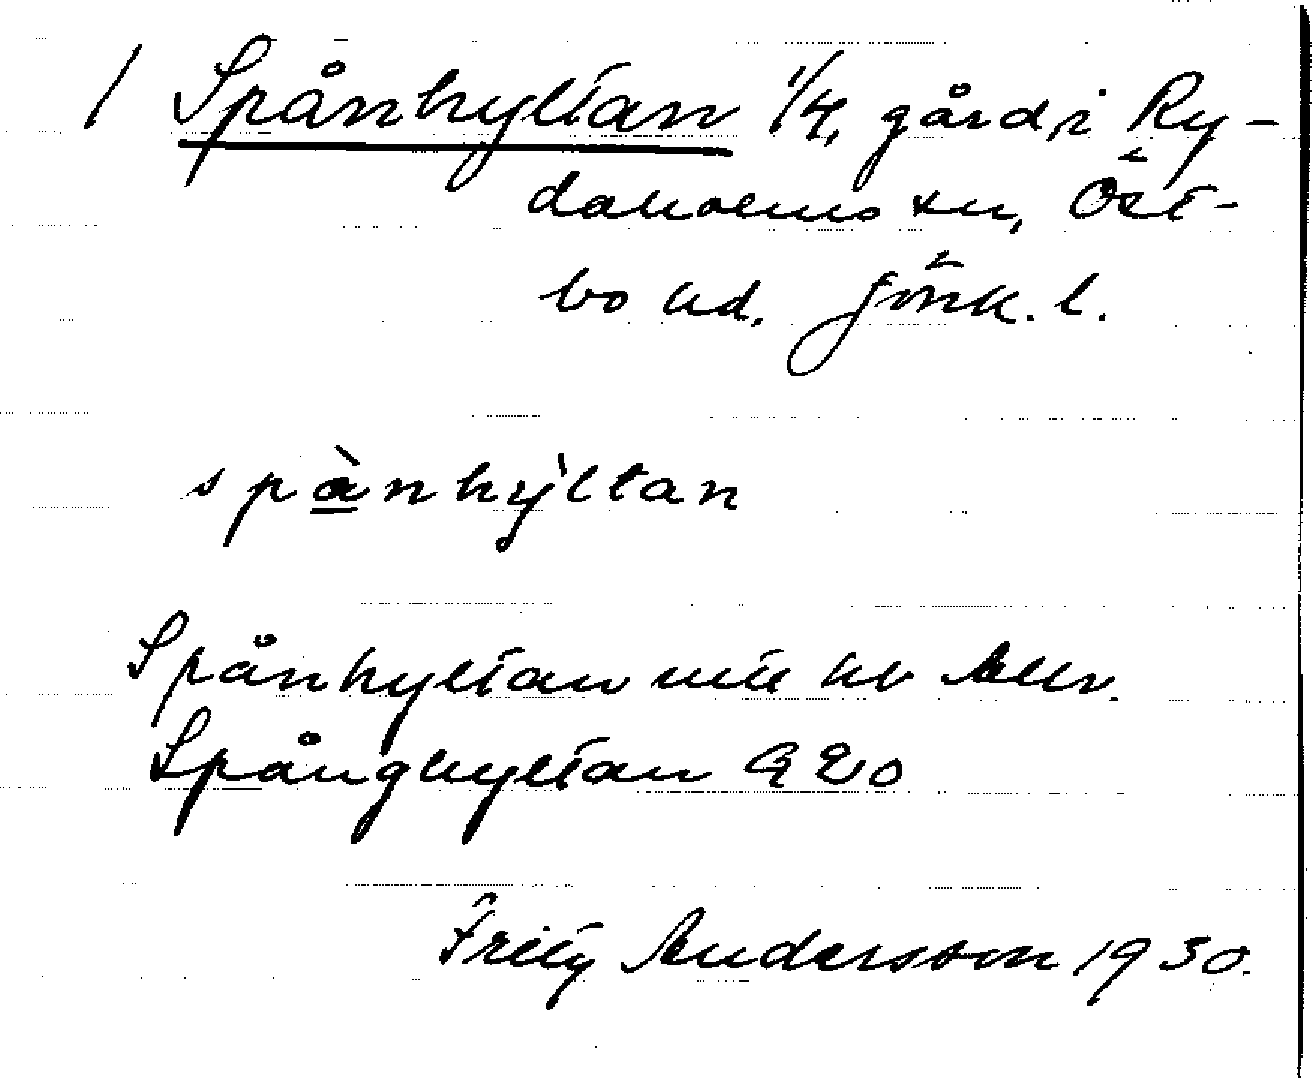 / Spånhyltan 1/4, gård i Ry-
daholms sn, Öst-
bo hd. Jönk. l.
spå̀nhỳltan
Spånhyltan
Spånghyltan GEO
Fritz Andersson 1930.